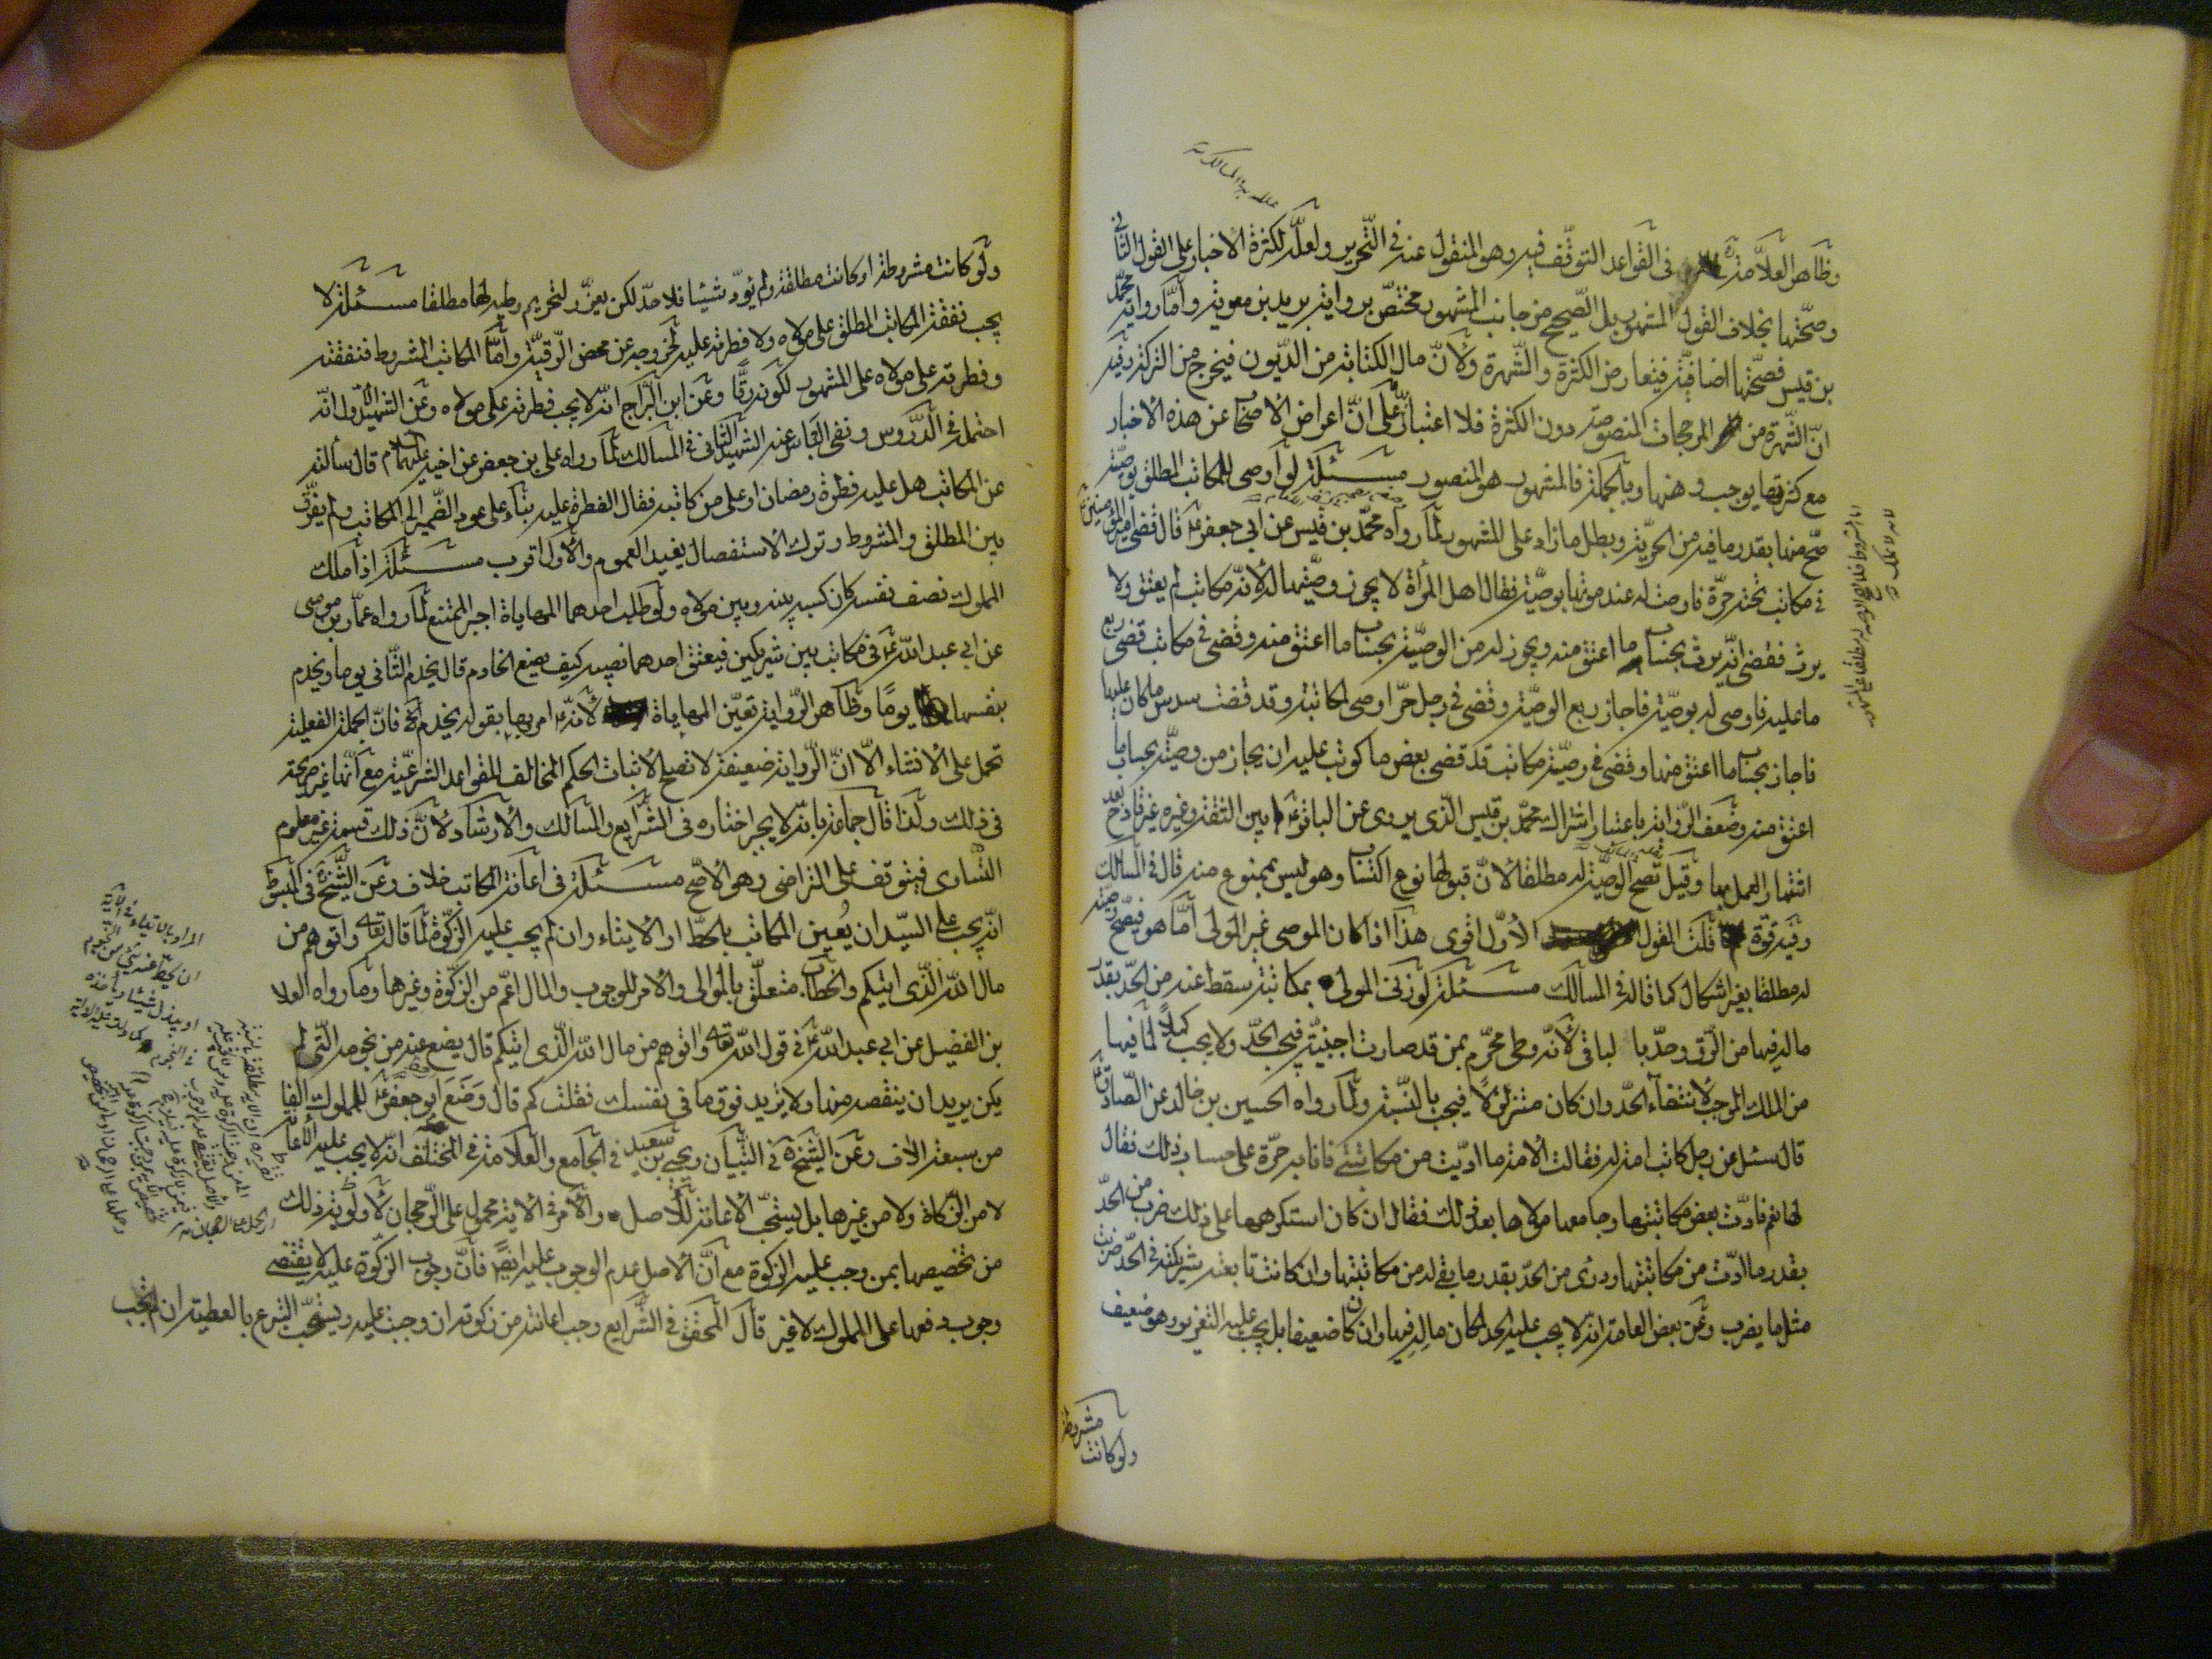 وظاهر العلامة في القواعد التوقف فيه وهو المنقول عنه في التحرير ولعله لكثرة الاخبار على القول الثاني
وصحتها بخلاف القول المشهور بل الصحيح من جانب المشهور مختص برواية بريد بن معوية وأما رواية محمد
بن قيس فصحتها اضافية فيتعارض الكثرة والشهرة ولأن مال الكتابة من الديون فيخرج من التركة وفيه
ان الشهرة من المرجحات المنصوصة دون الكثرة فلا اعتبار على ان اعراض الاصحاب عن هذه الاخبار
مع كثرتها يوجب وهنها وبالجملة فالمشهور هو المنصور مسئلة لو أوصى للمكاتب المطلق بوصية
صح منها بقدر ما فيه من الحرية وبطل ما زاد على المشهور لما رواه محمد بن قيس عن ابي جعفر ع قال قضى امير المؤمنين ع
في مكاتب تحته حرة فاوصت له عند موتها بوصية فقال اهل المرأة لا يجوز وصيتها له لانه مكاتب لم يعتق ولا
يرث فقضى انه يرث بحساب ما اعتق منه ويجوز له من الوصية بحساب ما اعتق منه وقضى في مكاتب قضى ربع
ما عليه فاوصى له بوصية فاجاز ربع الوصية وقضى في رجل حر اوصى لمكاتبته وقد قضت سدس ما كان عليها
فاجاز بحساب ما اعتق منها وقضى في وصية مكاتب قد قضى بعض ما كوتب عليه ان يجاز من وصيته بحساب ما
اعتق منه وضعف الرواية باعتبار اشتراك محمد بن قيس الذي يروى عن الباقر ع بين الثقة وغيره غير قادح بعد
اشتهار العمل بها وقيل تصح الوصية له مطلقا لان قبولها نوع اكتساب وهو ليس بممنوع منه قال في المسالك
وفيه قوة قلت القول الأول اقوى هذا اذا كان الموصى غير المولى أما هو فيصح وصيته
له مطلقا بغير اشكال كما قاله في المسالك مسئلة لو زنى المولى بمكاتبته سقط عنه من الحد بقدر
ماله فيها من الرق وحد بالباقي لأنه وطى محرم بمن قد صارت اجنبية فيجب الحد ولا يجب كملا لما فيها
من الملك الموجب لانتفاء الحد وان كان متزلزلا فيجب بالنسبة ولما رواه الحسين بن خالد عن الصادق ع
قال سئل عن رجل كاتب امة له فقالت الامة ما اديت من مكاتبتي فانا به حرة على حساب ذلك فقال
لها نعم فادت بعض مكاتبتها وجامعها مولاها بعد ذلك فقال ان كان استكرهها على ذلك ضرب من الحد
بقدر ما ادت من مكاتبتها ودرئ من الحد بقدر ما بقي له من مكاتبتها وان كانت تابعته شريكته في الحد ضربت
مثل ما يضرب وعن بعض العامة انه لا يجب عليه الحد لمكان ماله فيها وان كان ضعيفا بل يجب عليه التعزير وهو ضعيف
ولو كانت مشروطة
ولو كانت مشروطة او كانت مطلقة ولم تؤد شيئا فلا حد لكن يعزر لتحريم وطيه لها مطلقا مسئلة لا
يجب نفقة المكاتب المطلق على مولاه ولا فطرته عليه لخروجه عن محض الرقية وأما المكاتب المشروط فنفقته
وفطرته على مولاه على المشهور لكونه رقا وعن ابن البراج انه لا يجب فطرته على مولاه وعن الشهيد الأول انه
احتمله في الدروس ونفى الباس عنه الشهيد الثاني في المسالك لما رواه على بن جعفر عن اخيه عليهما السلام قال سألته
عن المكاتب هل عليه فطرة رمضان او على من كاتبه فقال الفطرة عليه بناء على عود الضمير الى المكاتب ولم يفرق
بين المطلق والمشروط وترك الاستفصال يفيد العموم والأول اقرب مسئلة اذا ملك
المملوك نصف نفسه كان كسبه بينه وبين مولاه ولو طلب احدهما المهاياة اجبر الممتنع لما رواه عمار بن موسى
عن ابي عبد الله ع في مكاتب بين شريكين فيعتق احدهما نصيبه كيف يصنع الخادم قال يخدم الثاني يوما ويخدم
نفسها يوما وظاهر الرواية تعين المهاياة لأنه ع امر بها بقوله يخدم الخ فان الجملة الفعلية
تحمل على الانشاء الا ان الرواية ضعيفة لا تصلح لاثبات الحكم المخالف للقواعد الشرعية مع أنها غير صريحة
في ذلك ولذا قال جماعة بانه لا يجبر اختاره في الشرايع والمسالك والارشاد لأن ذلك قسمة غير معلوم
التساوى فيتوقف على التراضى وهو الأصح مسئلة في اعانة المكاتب خلاف وعن الشيخ في المبسوط
انه يجب على السيد ان يعين المكاتب بالحط او الايتاء وان لم يجب عليه الزكوة لما قاله تعالى واتوهم من
مال الله الذي اتيكم والخطاب متعلق بالموالى والأمر للوجوب والمال اعم من الزكوة وغيرها وما رواه العلا
بن الفضيل عن ابي عبد الله ع في قول الله تعالى واتوهم من مال الله الذي اتيكم قال يضع عنه من نجومه التي لم
يكن يريد ان ينقصه منها ولا يزيد فوق ما في نفسك فقلت كم قال وضع ابو جعفر ع لمملوك الفا
من ستة الاف وعن الشيخ في التبيان ويحيى بن سعيد في الجامع والعلامة في المختلف انه لا يجب عليه الاعانة
لا من الزكاة ولا من غيرها بل يستحب الاعانة للأصل والأمر في الاية محمول على الرجحان لأولوية ذلك
من تخصيصها بمن وجب عليه الزكوة مع أن الأصل عدم الوجوب عليه ايضا فان وجوب الزكوة عليه لا يقتضى
وجوب دفعها على المملوك لا غير قال المحقق في الشرايع وجب اعانته من زكوته ان وجبت عليه ويستحب التبرع بالعطية ان لم تجب